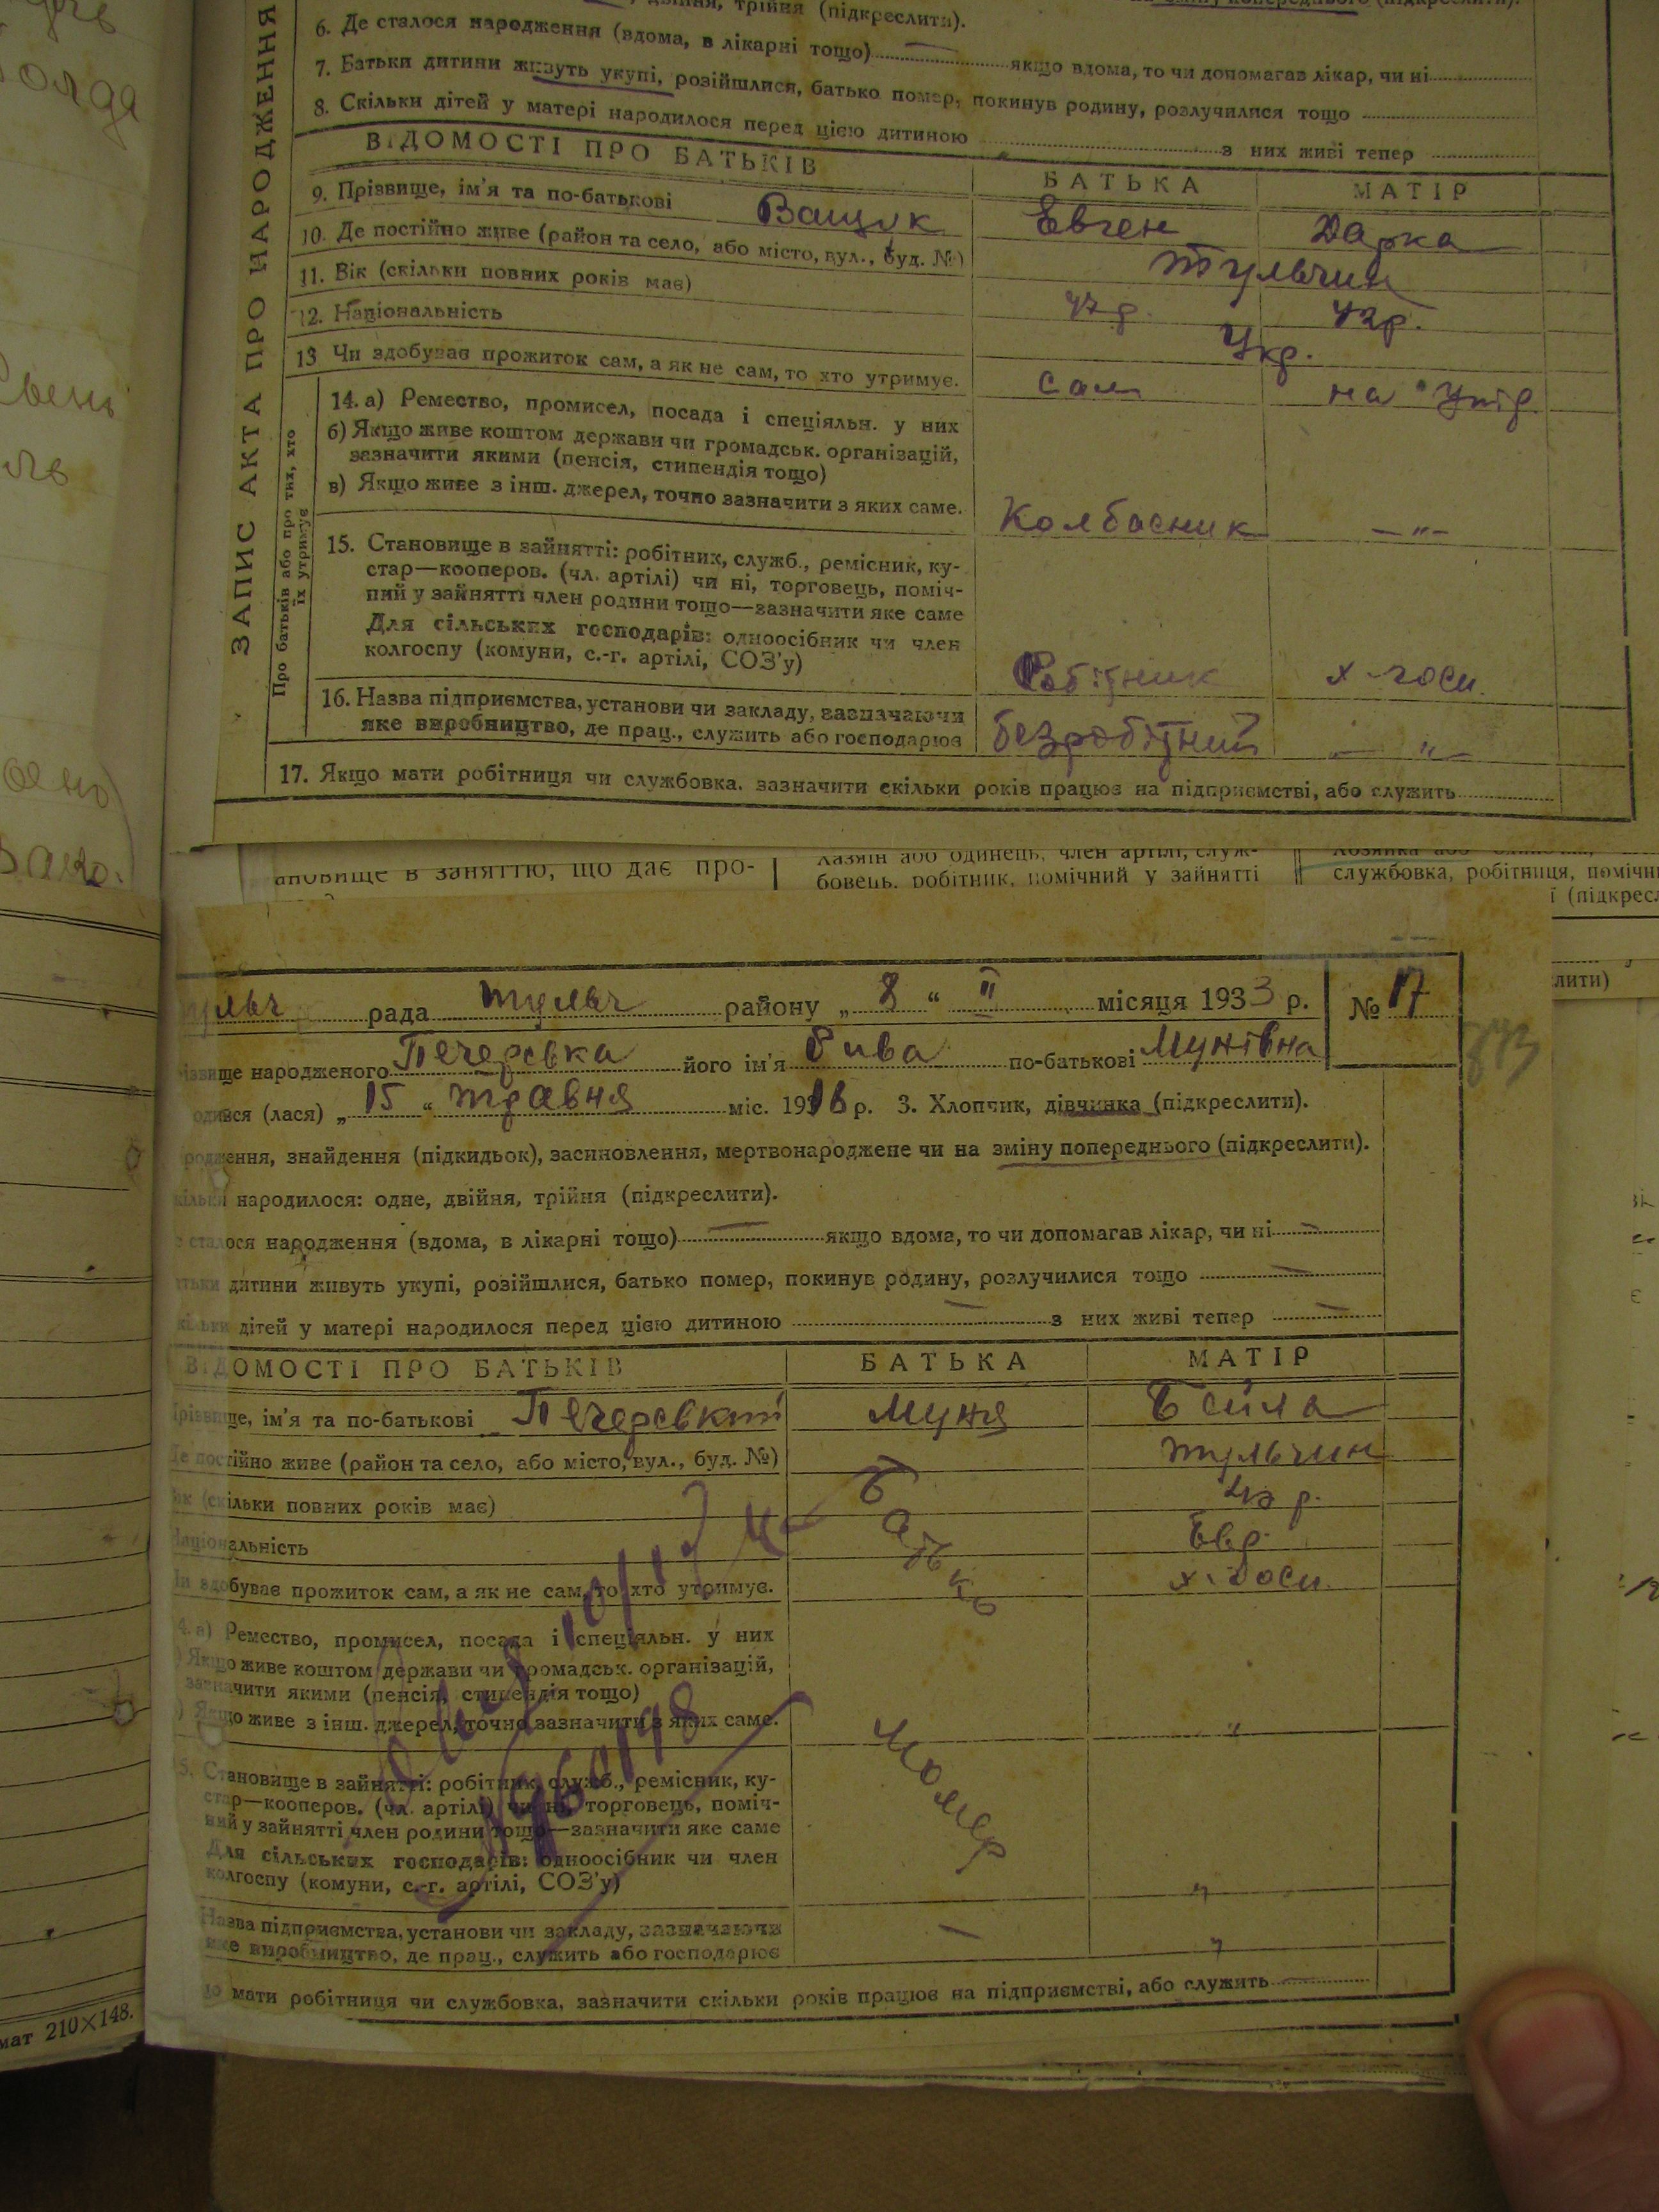 двійня, трійня (підкреслити).
6. Де сталося народження (вдома, в лікарні тощо) — якщо вдома, то чи допомагав лікар, чи ні
7. Батьки дитини живуть укупі, розійшлися, батько помер, покинув родину, розлучилися тощо
8. Скільки дітей у матері народилося перед цією дитиною з них живі тепер
ЗАПИС АКТА ПРО НАРОДЖЕННЯ
ВІДОМОСТІ ПРО БАТЬКІВ БАТЬКА МАТІР
9. Прізвище, ім'я та по-батькові Ващук Евген Дарка
10. Де постійно живе (район та село, або місто, вул., буд. №) Тульчин
11. Вік (скільки повних років має) 47 р. 42 р.
12. Національність Укр.
13 Чи здобував прожиток сам, а як не сам, то хто утримує. сам на утр
Про батьків або про тих, хто їх утримує
14. а) Ремество, промисел, посада і спеціяльн. у них
б) Якщо живе коштом держави чи громадськ. організацій,
зазначити якими (пенсія, стипендія тощо)
в) Якщо живе з інш. джерел, точно зазначити з яких саме. Колбасник — „ —
15. Становище в зайнятті: робітник, служб., ремісник, ку-
стар—кооперов. (чл. артілі) чи ні, торговець, поміч-
ний у зайнятті член родини тощо—зазначити яке саме
Для сільських господарів: одноосібник чи член
колгоспу (комуни, с.-г. артілі, СОЗ'у) Робітник х-госп.
16. Назва підприємства, установи чи закладу, зазначаючи
яке виробництво, де прац., служить або господарює безробітний — „ —
17. Якщо мати робітниця чи службовка, зазначити скільки років працює на підприємстві, або служить
ановище в заняттю, що дає про-
хазяїн або одинець, член артілі, служ-
бовець, робітник, помічний у зайнятті
службовка, робітниця, помічн
(підкресл
лити)
рада Тульч району „ 8 “ II місяця 1933 р. № 17
ще народженого Печерська його ім'я Рива по-батькові Мунівна
вся (лася) „ 15 “ травня міс. 1916 р. 3. Хлопчик, дівчинка (підкреслити).
ення, знайдення (підкидьок), засиновлення, мертвонароджене чи на зміну попереднього (підкреслити).
народилося: одне, двійня, трійня (підкреслити).
ося народження (вдома, в лікарні тощо) — якщо вдома, то чи допомагав лікар, чи ні —
дитини живуть укупі, розійшлися, батько помер, покинув родину, розлучилися тощо —
дітей у матері народилося перед цією дитиною — з них живі тепер —
ВІДОМОСТІ ПРО БАТЬКІВ БАТЬКА МАТІР
Прізвище, ім'я та по-батькові Печерський Муня Бейла
Де постійно живе (район та село, або місто, вул., буд. №) Тульчин
Вік (скільки повних років має) р.
Національність Євр.
Чи здобував прожиток сам, а як не сам, то хто утримує. х. госп.
Батько
помер
14. а) Ремество, промисел, посада і спеціяльн. у них
Якщо живе коштом держави чи громадськ. організацій,
зазначити якими (пенсія, стипендія тощо)
Якщо живе з інш. джерел, точно зазначити з яких саме. „
15. Становище в зайнятті: робітник, служб., ремісник, ку-
стар—кооперов. (чл. артілі) чи ні, торговець, поміч-
ний у зайнятті член родини тощо—зазначити яке саме
Для сільських господарів: одноосібник чи член
колгоспу (комуни, с.-г. артілі, СОЗ'у) „
Назва підприємства, установи чи закладу, зазначаючи
яке виробництво, де прац., служить або господарює — „
мати робітниця чи службовка, зазначити скільки років працює на підприємстві, або служить —
мат 210×148.